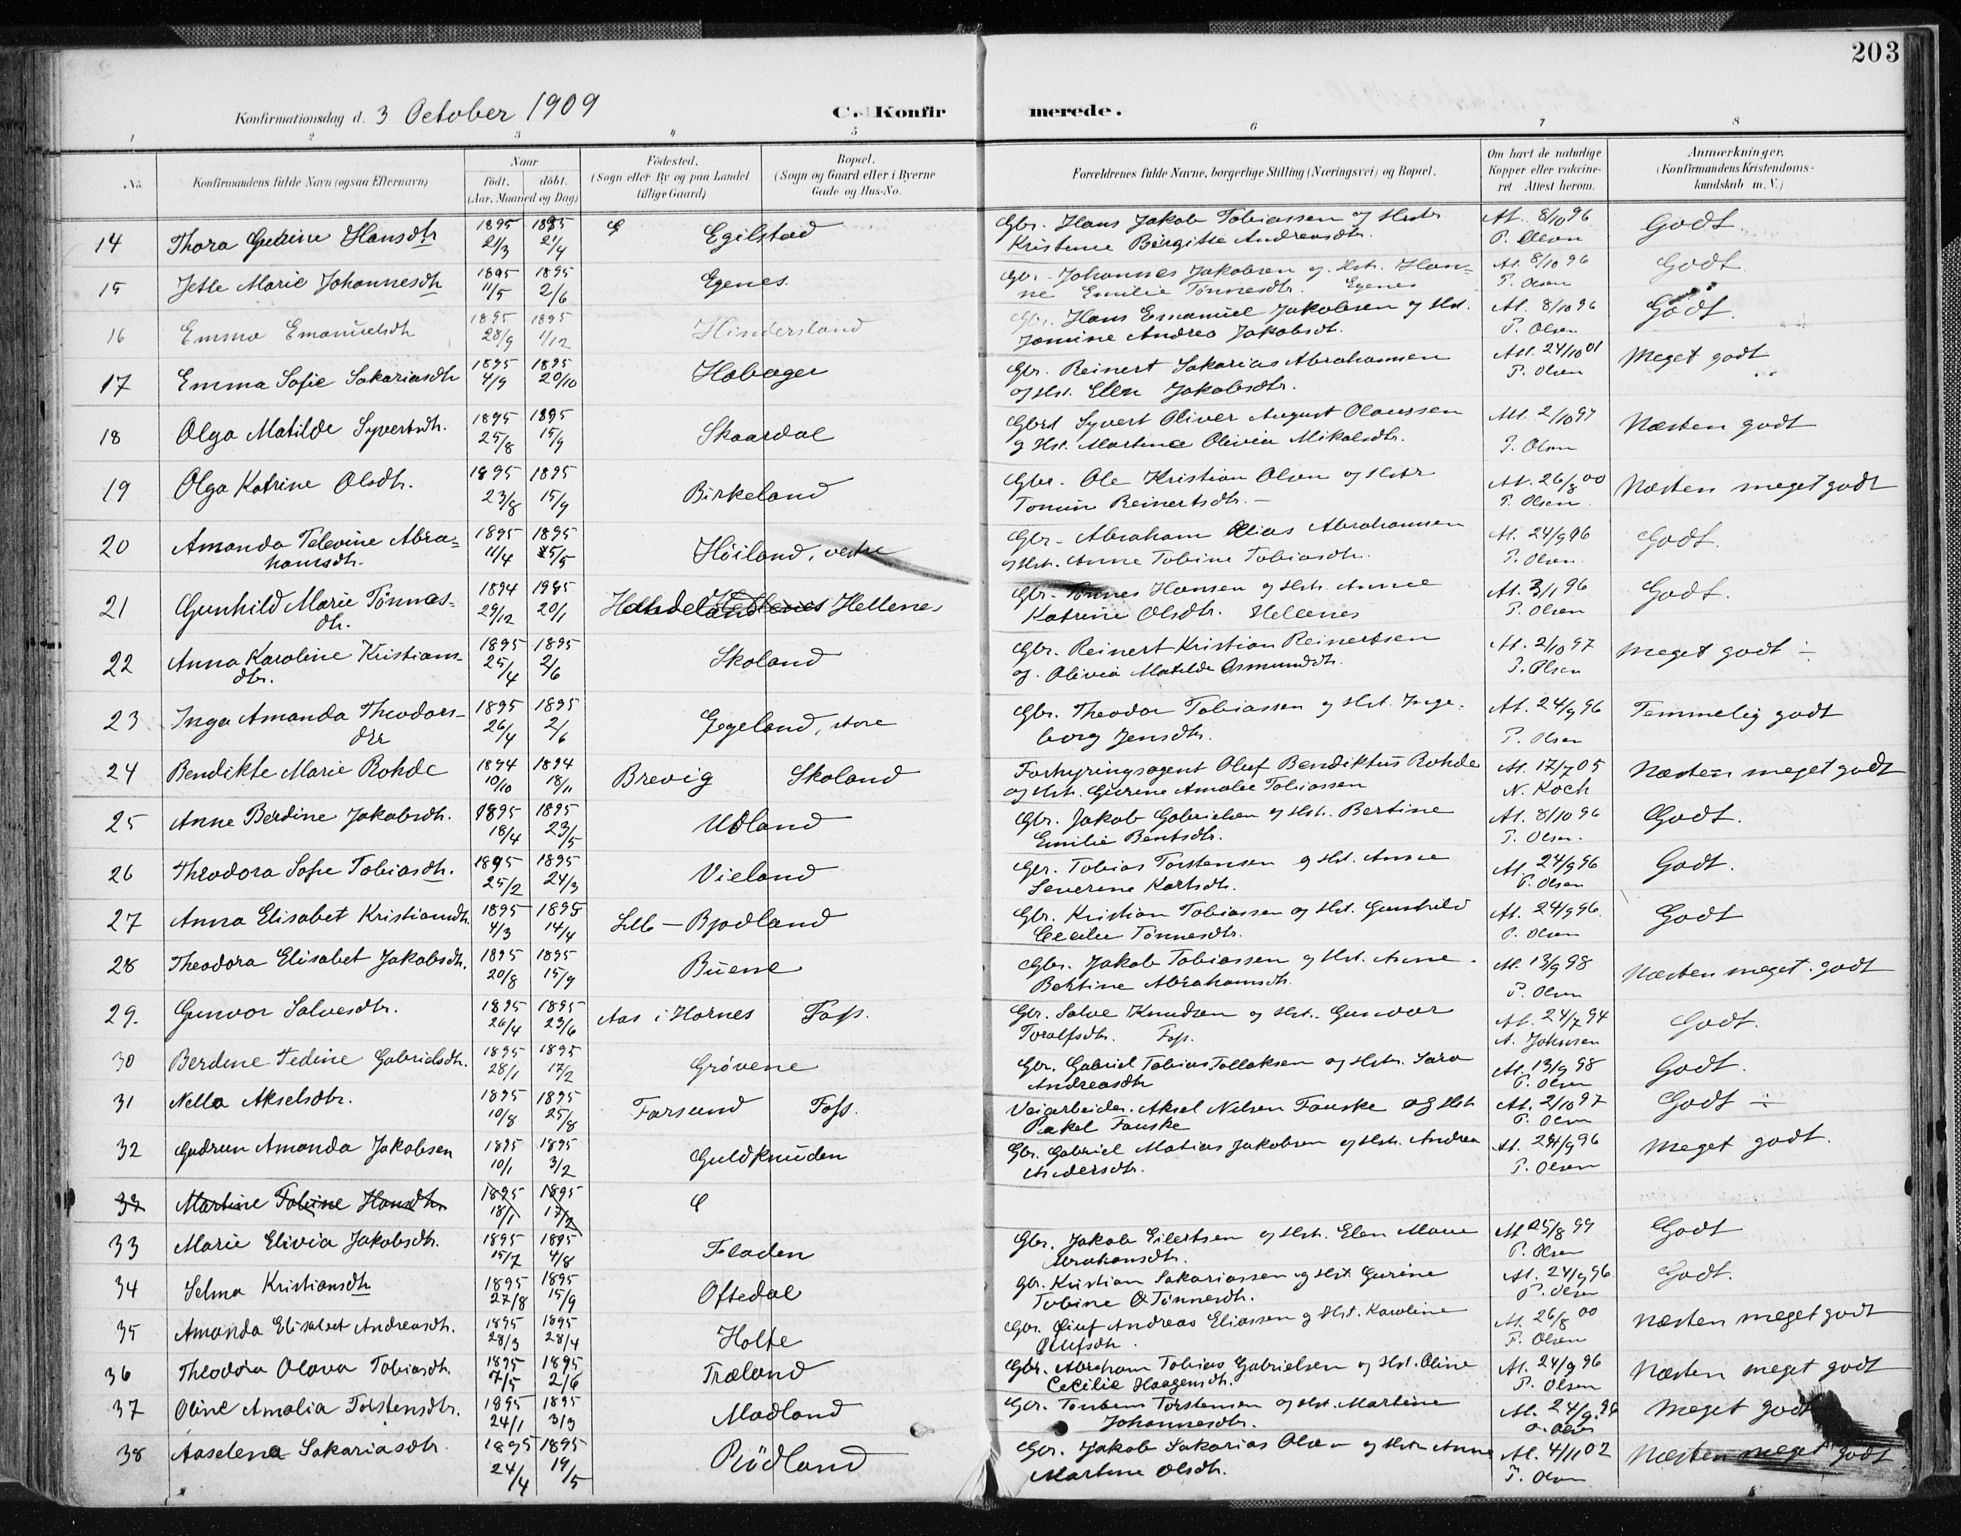 203
Konfirmationsdag d. 3 October 1909
C. Konfir merede.
1 2 3 4 5 6 7 8
No. Konfirmandens fulde Navn (ogsaa Efternavn) Naar født. døbt. (Aar, Maaned og Dag) Födested. (Sogn eller By og paa Landet tillige Gaard) Bopæl. (Sogn og Gaard eller i Byerne Gade og Hus-No. Forældrenes fulde Navne, borgerlige Stilling (Næringsvei) og Bopæl. Om havt de naturlige Kopper eller vaccineret Attest herom. Anmærkninger. (Konfirmandens Kristendomskundskab m. V.)
14 Thora Gurine Hansdtr 1895 21/3 1895 21/4 Egilstad Gbr. Hans Jakob Tobiassen og Hstr. Kristine Birgitte Andreasdtr. At. 8/10 96 P. Olsen Godt.
15 Jette Marie Johannesdtr 1895 11/5 1895 2/6 Egenes Gbr. Johannes Jakobsen og Hst. Hanne Emilie Tønnesdtr. Egenes At. 8/10 96 P. Olsen Godt
16 Emma Emanuelsdtr 1895 28/9 1895 1/12 Hindersland Gbr. Hans Emanuel Jakobsen og Hst. Jomine Andrea Jakobsdt. At. 8/10 96 P. Olsen Godt
17 Emma Sofie Sakariasdtr 1895 4/9 1895 20/10 Habager Gbr. Reinert Sakarias Abrahamsen og Hst. Elen Jakobsdtr. Att. 24/10 01 P. Olsen Meget godt
18 Olga Matilde Syvertsdtr. 1895 25/8 1895 15/9 Skaardal Gbrd Syvert Oliver August Olaussen og Hst. Martine Olivia Mikalsdtr. Att. 2/10 97 P. Olsen Næsten godt
19 Olga Katrine Olsdtr. 1895 23/8 1895 15/9 Birkeland Gbr. Ole Kristian Olsen og Hstr Tomine Reinertsdtr. – At. 26/8 00 P. Olsen Næsten meget godt
20 Amanda Televine Abrahamsdtr. 1895 11/4 1895 25/5 Høiland, vestre Gbr. Abraham Elias Abrahamsen og Hst. Anne Tobine Tobiasdtr. At. 24/9 96 P. Olsen Godt.
21 Gunhild Marie Tønnesdtr. 1894 29/12 1895 20/1 Hellenes Gbr. Tønnes Hansen og Hst. Anne Katrine Olsdtr. Hellenes At. 3/1 96 P. Olsen Godt.
22 Anna Karoline Kristiansdtr. 1895 25/4 1895 2/6 Skoland Gbr. Reinert Kristian Reinertsen og Olivia Matilde Osmundsdtr. At. 2/10 97 P. Olsen Meget godt ÷
23 Inga Amanda Theodorsdtr 1895 26/4 1895 2/6 Egeland, store Gbr. Theodor Tobiassen og Hst. Ingeborg Jensdtr. At. 24/9 96 P. Olsen Temmelig godt
24 Bendikte Marie Rohde 1894 10/10 1894 18/11 Brevig Skoland Forhyringsagent Oluf Bendiktus Rohde og Hst. Gurine Amalie Tobiassen At. 17/7 05 N. Koch Næsten meget godt
25 Anne Berdine Jakobsdtr. 1895 18/4 1895 23/5 Udland Gbr. Jakob Gabrielsen og Hst. Bertine Emilie Bentsdtr. At. 8/10 96 P. Olsen. Godt.
26 Theodora Sofie Tobiasdtr. 1895 25/2 1895 24/3 Vieland Gbr. Tobias Torstensen og Hst. Anne Severine Karlsdtr. At. 24/9 96 P. Olsen Godt.
27 Anna Elisabet Kristiansdtr. 1895 4/3 1895 14/4 Lille – Bjodland Gbr. Kristian Tobiassen og Hst. Gunhild Cecilie Tønnesdtr. At. 24/9 96. P. Olsen Godt
28 Theodora Elisabet Jakobsdtr. 1895 20/8 1895 15/9 Buene Gbr. Jakob Tobiassen og Hst. Anne Bertine Abrahamsdtr. At. 13/9 98 P. Olsen Næsten meget godt
29. Gunvor Salvesdtr. 1895 26/4 1895 23/6 Aas i Hornes Foss. Gbr. Salve Knudsen og Hst. Gunvor Toralfsdtr. Foss. At. 24/7 94 A. Johnsen Godt.
30 Berdine Tedine Gabrielsdtr. 1895 28/1 1895 17/2 Grøvene Gbr. Gabriel Tobias Tollaksen og Hstr. Sara Andreasdtr At. 13/9 98 P. Olsen Godt.
31 Nella Akselsdtr. 1895 10/8 1895 25/8 Farsund Foss. Veiarbeider. Aksel Nilsen Fauske og Hst Rakel Fauske At. 2/10 97 P. Olsen Godt ÷
32 Gudrun Amanda Jakobsen 1895 10/1 1895 3/2 Guldknuden Gbr. Gabriel Matias Jakobsen og Hstr. Andrea Andersdtr. At. 24/9 96 P. Olsen Meget godt.
37 Martine Tobine Hansdtr. 1895 18/1 1895 17/2
33 Marie Elivia Jakobsdtr. 1895 15/7 1895 4/8 Fladen Gbr. Jakob Eilertsen og Hst. Elen Marie Abrahamsdtr. At 25/8 99 P. Olsen Godt
34 Selma Kristiansdtr 1895 27/8 1895 15/9 Oftedal Gbr. Kristian Sakariassen og Hst. Gurine Tobine O Tønnesdtr. At. 24/9 96 P. Olsen Godt.
35 Amanda Elisabet Andreasdtr. 1895 28/3 1895 28/4 Holte Gbr. Oluf Andreas Eliassen og Hst. Karoline Olufsdtr. At. 26/8 00 P. Olsen Næsten meget godt
36 Theodora Olava Tobiasdtr. 1895 7/5 1895 2/6 Træland Gbr. Abraham Tobias Gabrielsen og Hst. Oline Cecilie Haagensdtr. At. 24/9 96 P. Olsen Næsten meget godt
37 Oline Amalia Torstensdtr. 1895 24/1 1895 3/3 Modland Gbr. Torstensen og Hst. Martine Johannesdtr. At. 24/9. Olsen Meget godt
38 Aaselena Sakariasdtr. 1895 24/4 1895 19/5 Rödland Gbr. Jakob Sakarias Olsen og Hstr. Anne Martine Olsdtr. At. 4/11 02 P. Olsen Næsten meget godt